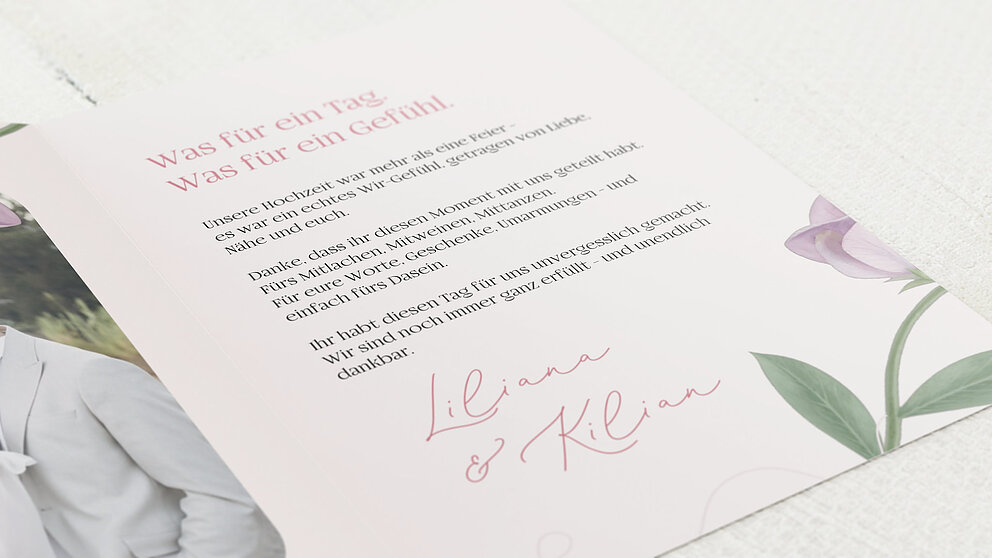 Was für ein Tag.
Was für ein Gefühl.
Unsere Hochzeit war mehr als eine Feier –
es war ein echtes Wir-Gefühl, getragen von Liebe,
Nähe und euch.
Danke, dass ihr diesen Moment mit uns geteilt habt.
Fürs Mitlachen, Mitweinen, Mittanzen.
Für eure Worte, Geschenke, Umarmungen – und
einfach fürs Dasein.
Ihr habt diesen Tag für uns unvergesslich gemacht.
Wir sind noch immer ganz erfüllt – und unendlich
dankbar.
Liliana
& Kilian